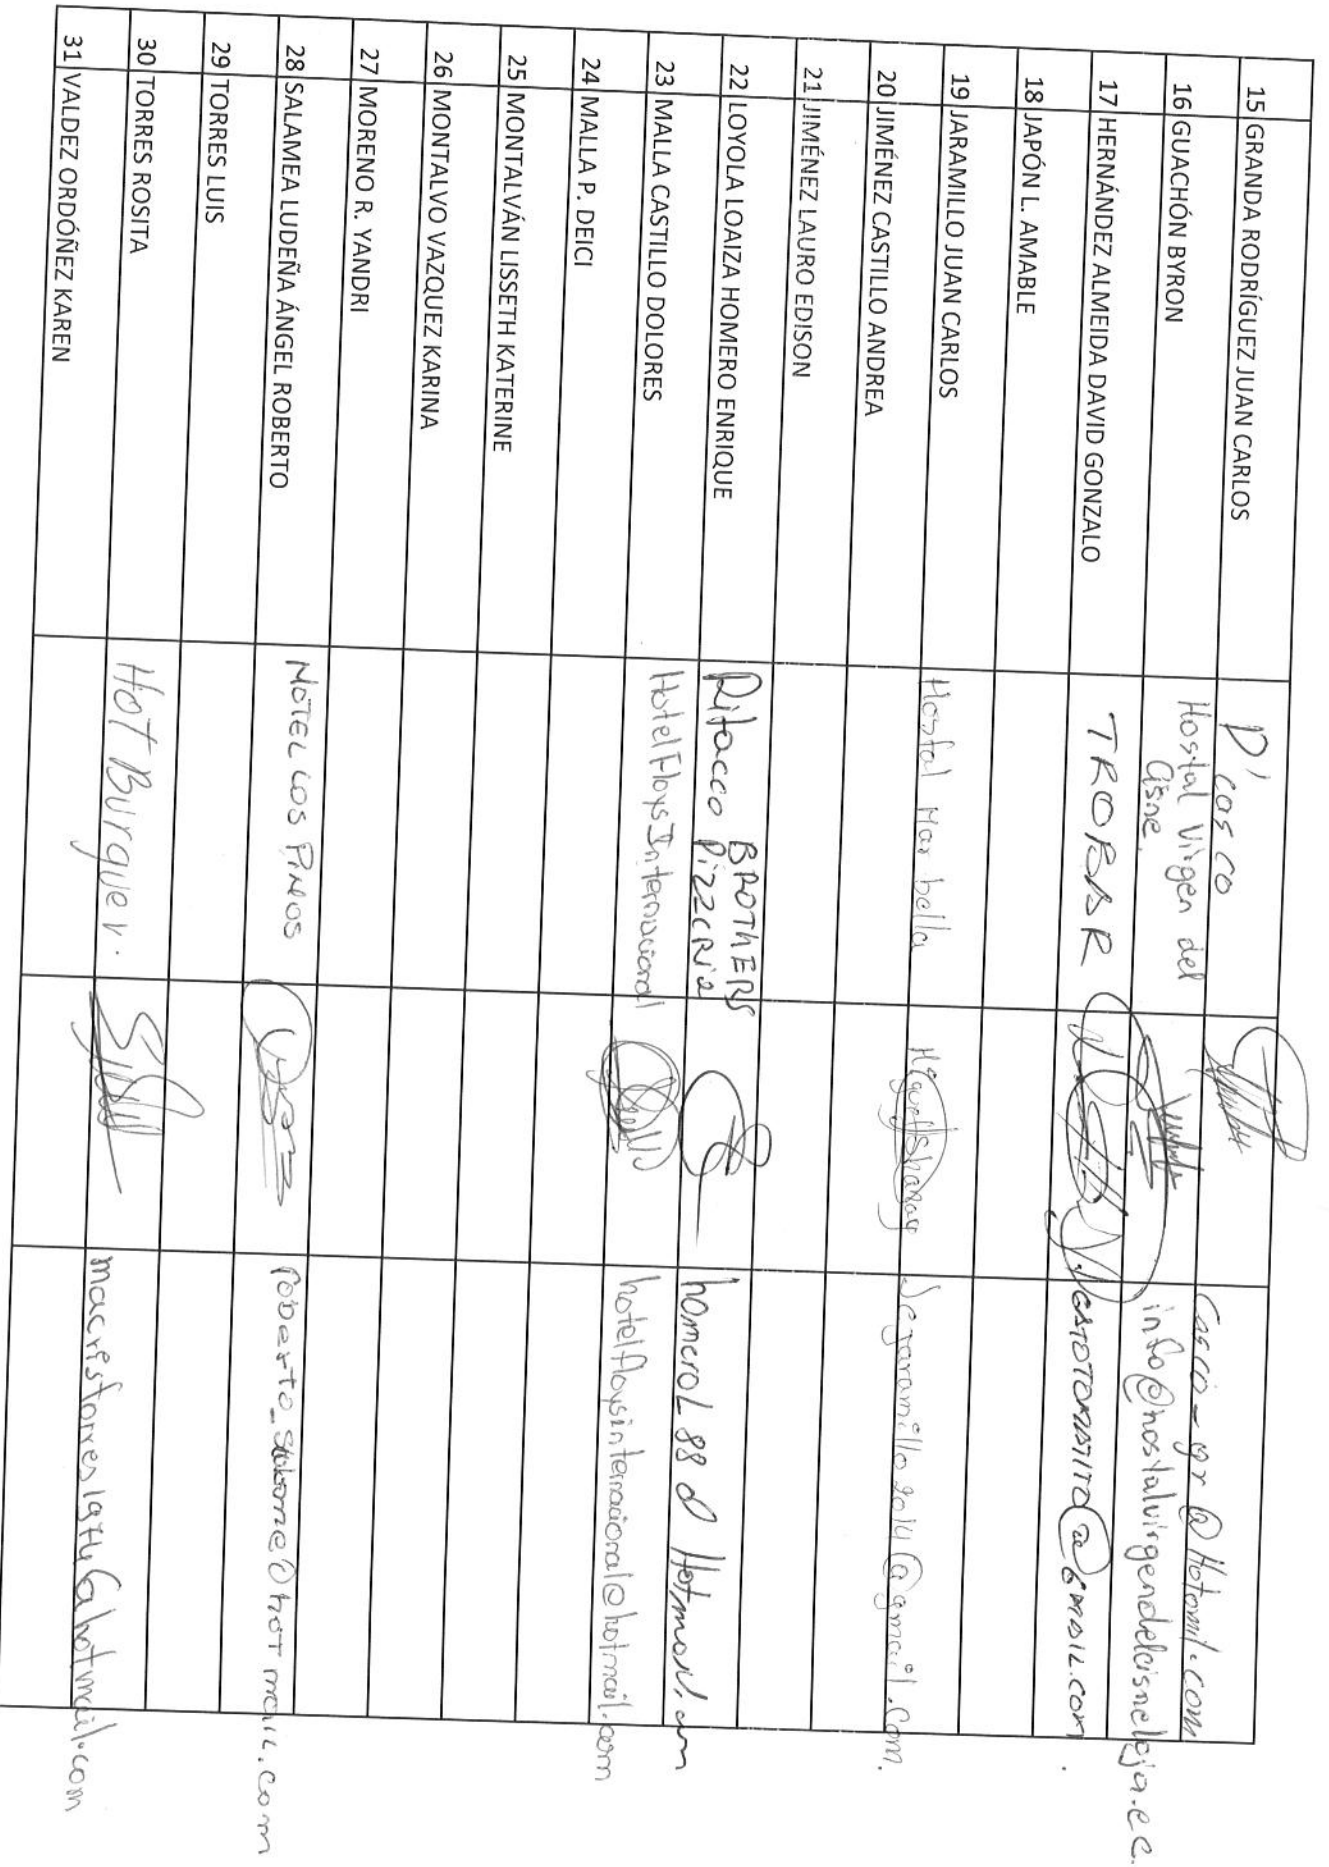 15 GRANDA RODRÍGUEZ JUAN CARLOS D' casco Casco-gr@Hotmil.com
16 GUACHÓN BYRON Hostal Virgen del Cisne. info@hostalvirgendelcisneloja.ec.
17 HERNÁNDEZ ALMEIDA DAVID GONZALO TROBAR GATOTOMATITO@GMAIL.COM.
18 JAPÓN L. AMABLE
19 JARAMILLO JUAN CARLOS Hostal Mar bella Jcjaramillo2014@gmail.com.
20 JIMÉNEZ CASTILLO ANDREA
21 JIMÉNEZ LAURO EDISON
22 LOYOLA LOAIZA HOMERO ENRIQUE Ritacco BROTHERS Pizzeria homeroL88@Hotmail.com
23 MALLA CASTILLO DOLORES Hotel Floys Internacional hotelfloysinternacional@hotmail.com
24 MALLA P. DEICI
25 MONTALVÁN LISSETH KATERINE
26 MONTALVO VAZQUEZ KARINA
27 MORENO R. YANDRI
28 SALAMEA LUDEÑA ÁNGEL ROBERTO MOTEL LOS PINOS
29 TORRES LUIS
30 TORRES ROSITA Hot Burguer. macristorres1974@hotmail.com
31 VALDEZ ORDÓÑEZ KAREN